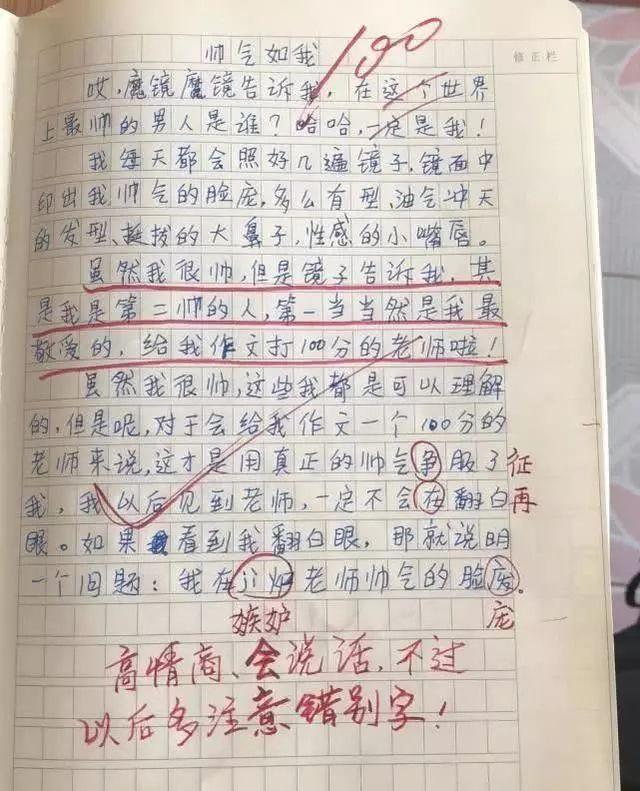 帅气如我
100
修正栏
哎，魔镜魔镜告诉我，在这个世界
上最帅的男人是谁？哈哈，一定是我！
我每天都会照好几遍镜子，镜面中
印出我帅气的脸庞，多么有型、油气冲天
的发型、挺拔的大鼻子，性感的小嘴唇。
虽然我很帅，但是镜子告诉我，其
是我是第二帅的人，第一当当然是我最
敬爱的，给我作文打100分的老师啦！
虽然我很帅，这些我都是可以理解
的，但是呢，对于会给我作文一个100分的
老师来说，这才是用真正的帅气争服了 征
我，我以后见到老师，一定不会在翻白 再
眼。如果看到我翻白眼，那就说明
一个问题：我在老师帅气的脸。
嫉妒 庞
高情商、会说话，不过
以后多注意错别字！